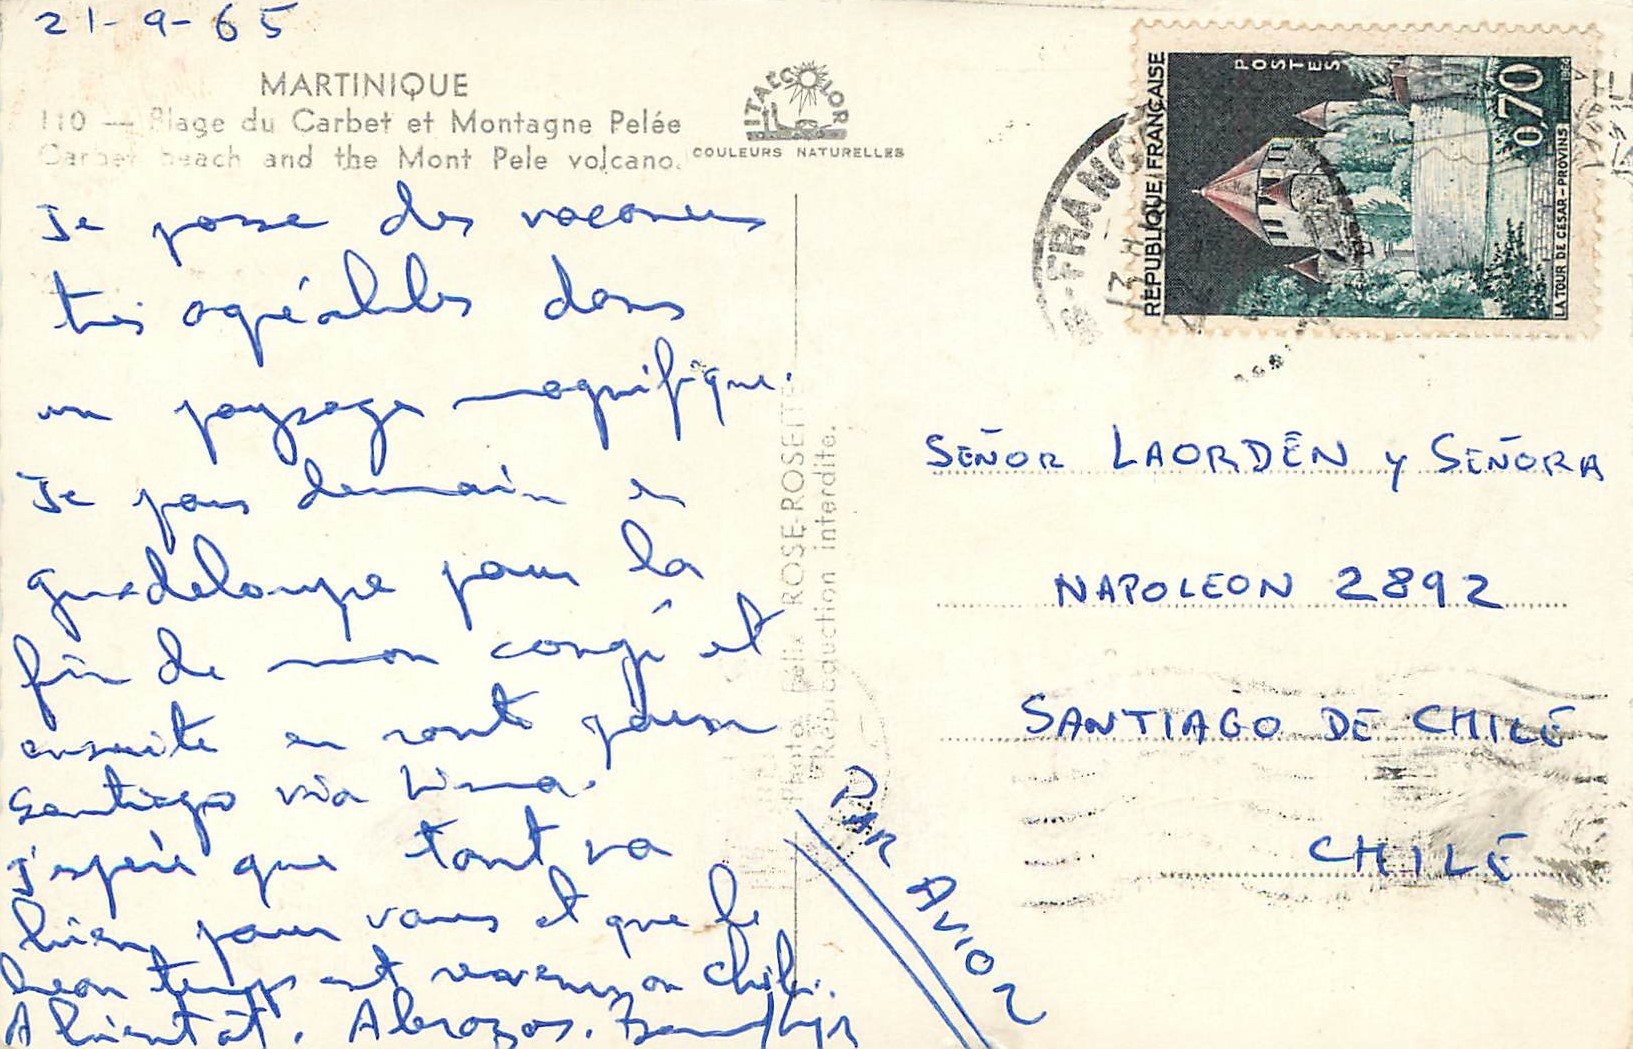 21-9-65
MARTINIQUE
110 — Plage du Carbet et Montagne Pelée
Carbet beach and the Mont Pele volcano.
ITALCOLOR
COULEURS NATURELLES
Je passe des vacances
très agréables dans
un paysage magnifique.
Je pars demain en
guadeloupe pour la
fin de mon congé et
ensuite en route pour
Santiago via Lima.
J'espère que tout va
bien pour vous et que le
beau temps est revenu au Chili.
A bientôt. Abrazos.
Photo Félix ROSE-ROSETTE
Reproduction interdite.
PAR AVION
POSTES
RÉPUBLIQUE FRANÇAISE
0,70
LA TOUR DE CÉSAR - PROVINS
1964
-FRANCE
13 H
SEÑOR LAORDEN y SEÑORA
NAPOLEON 2892
SANTIAGO DE CHILE
CHILE